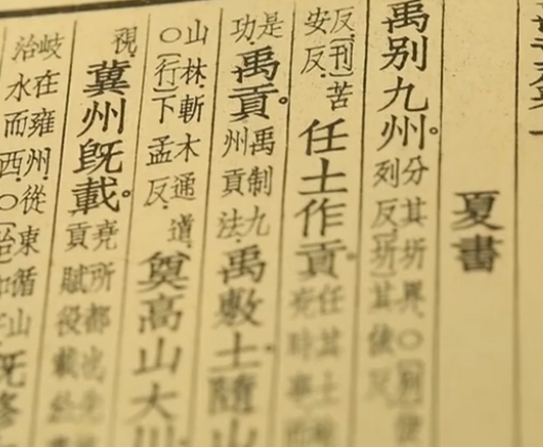 夏書
禹別九州。分其圻界。〇[別]彼列反[圻]其依反
反[刊]苦安反任土作貢。任其土
是功。禹貢。禹制九州貢法。禹敷土隨山
山林。斬木通道。〇[行]下孟反。奠高山大川
視。冀州既載。堯所都也先貢賦役載於
岐在雍州。從東循山治水而西。〇[治]如既修